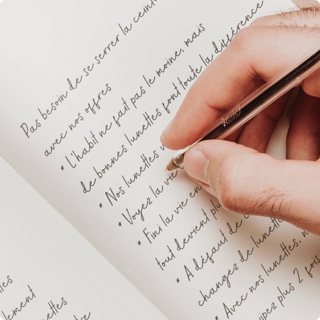 Pas besoin de se serrer la ceint
avec nos offres
• L'habit ne fait pas le moine, mais
de bonnes lunettes font toute la différence
• Nos lunettes
• Voyez la vie
• Fini la vie en
tout devient pl
• A défaut de c
changez de lunett
• Avec nos lunettes, n
uipez plus 2 fois
lement
ettes